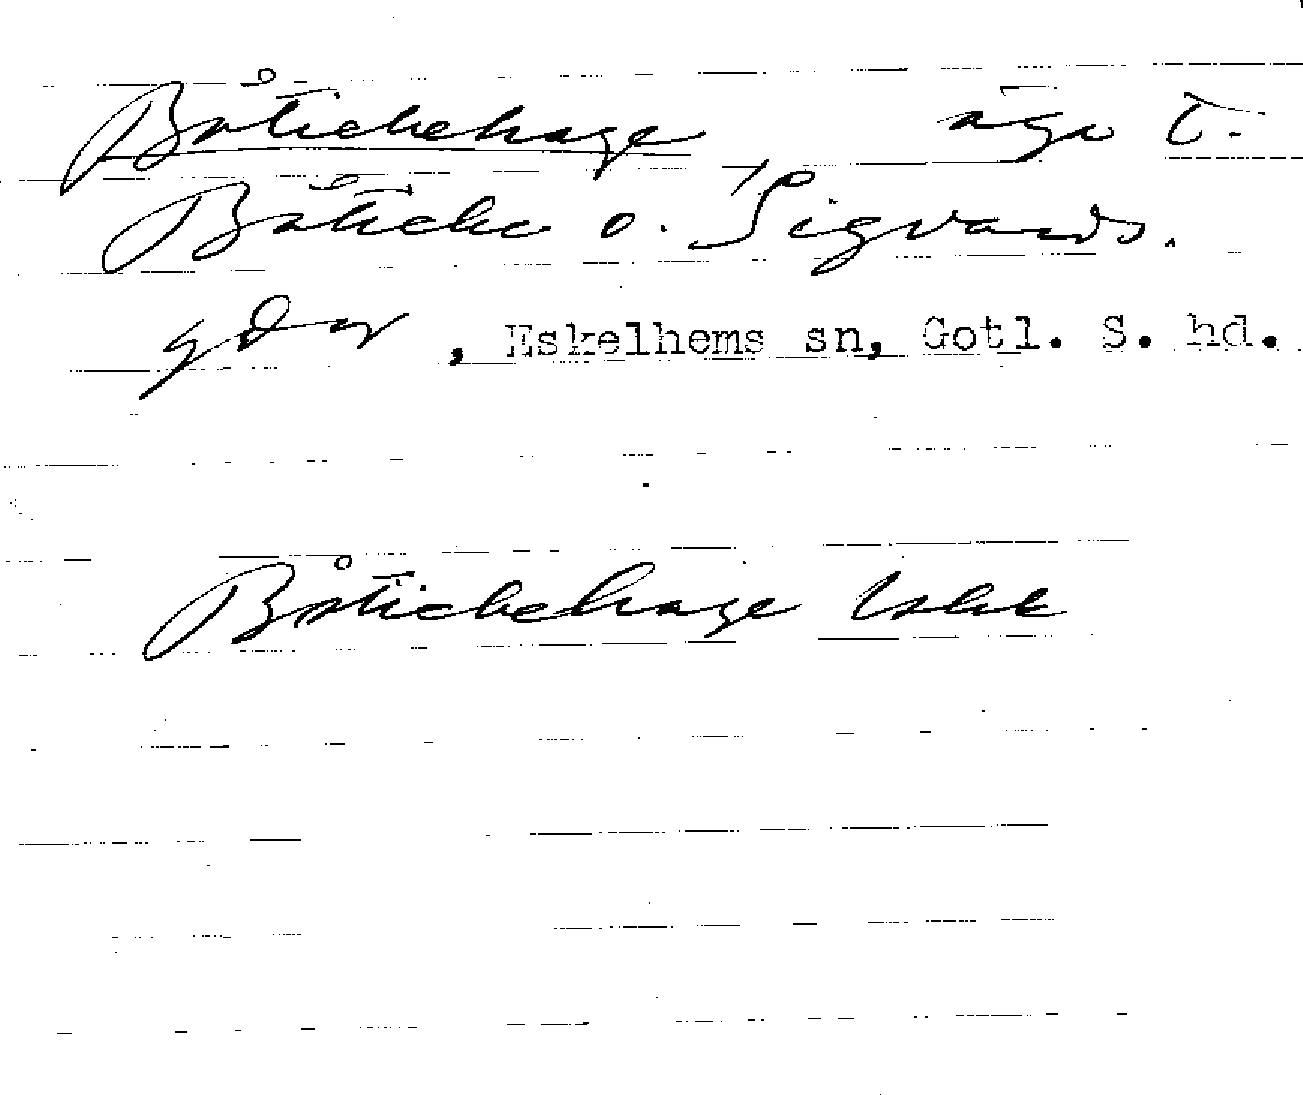 Båtickehage ägo t.
Båticke o. Sigvards.
gdar, Eskelhems sn, Gotl. S. hd.
Båtickehage